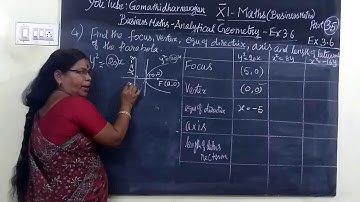 YouTube: Gomathidharmarajan XI-Maths (Business Maths)
Business Maths-Analytical Geometry-Ex 3.6 Part 35
4) Find the focus, vertex, equ of directrix, axis and length of latus Ex 3.6
of the parabola.
y²=20x
(0,0) F(a,0)
y²=20x x²=8y x²=-16y
Focus (5,0)
Vertex (0,0)
equ of directrix x=-5
axis
length of latus
rectum